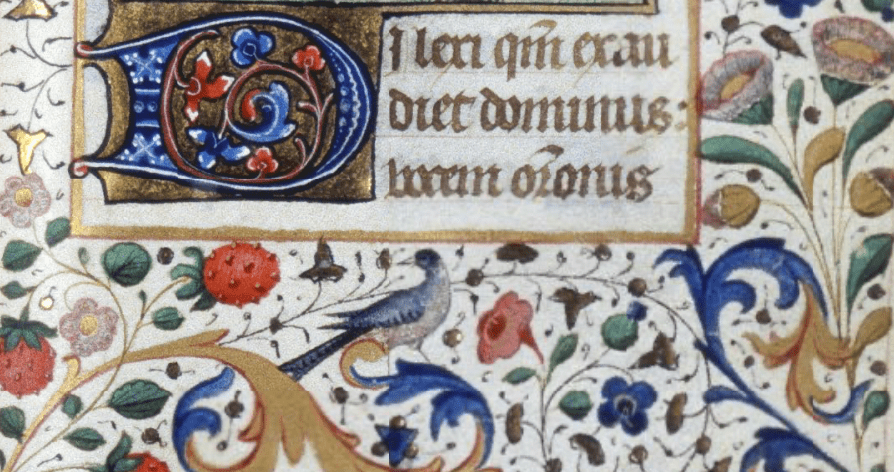 DIlexi qm̄ exau
diet dominus:
vocem or̄onis